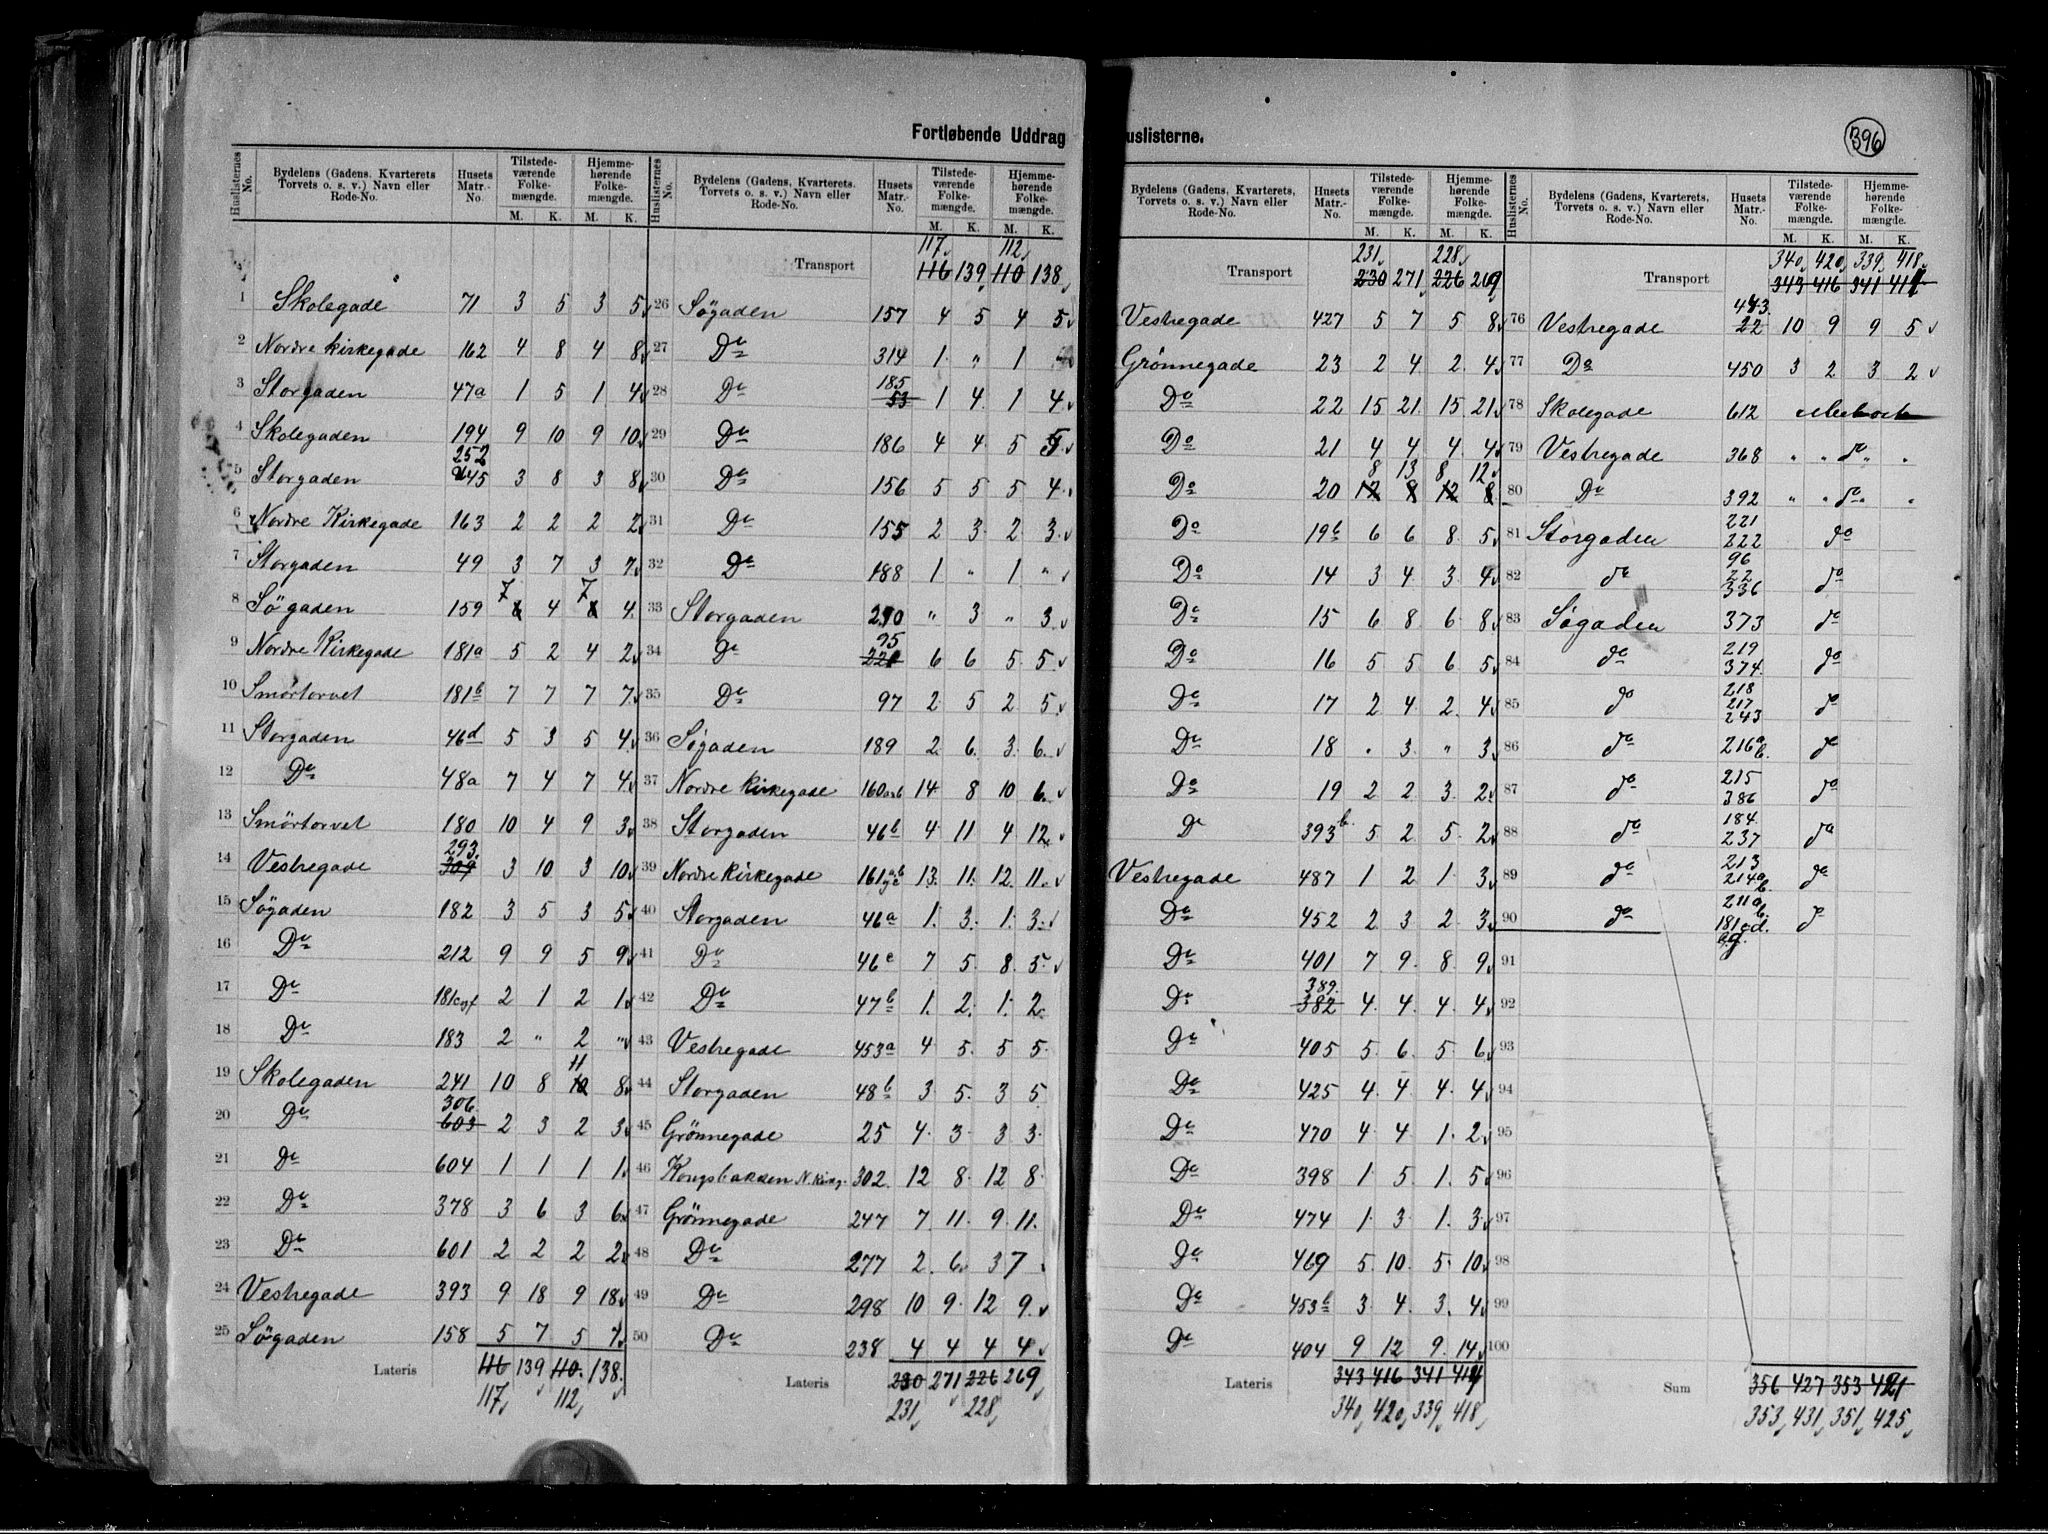 Fortløbende Uddrag
uslisterne.
396
Huslisternes No. | Bydelens (Gadens, Kvarterets Torvets o. s. v.) Navn eller Rode-No. | Husets Matr.-No. | Tilstedeværende Folkemængde. M. K. | Hjemmehørende Folkemængde. M. K.
1 Skolegade 71 3 5 3 5
2 Nordre Kirkegade 162 4 8 4 8
3 Storgaden 47a 1 5 1 4
4 Skolegaden 194 9 10 9 10
5 Storgaden 252 245 3 8 3 8
6 Nordre Kirkegade 163 2 2 2 2
7 Storgaden 49 3 7 3 7
8 Søgaden 159 7 4 7 4
9 Nordre Kirkegade 181a 5 2 4 2
10 Smørtorvet 181b 7 7 7 7
11 Storgaden 46d 5 3 5 4
12 Do 48a 7 4 7 4
13 Smørtorvet 180 10 4 9 3
14 Vestregade 293 309 3 10 3 10
15 Søgaden 182 3 5 3 5
16 Do 212 9 9 5 9
17 Do 181 2 1 2 1
18 Do 183 2 " 2 "
19 Skolegaden 241 10 8 11 10 8
20 Do 306 603 2 3 2 3
21 Do 604 1 1 1 1
22 Do 378 3 6 3 6
23 Do 601 2 2 2 2
24 Vestregade 393 9 18 9 18
25 Søgaden 158 5 7 5 7
Lateris 116 139 110 138
117 112
Huslisternes No. | Bydelens (Gadens, Kvarterets, Torvets o. s. v.) Navn eller Rode-No. | Husets Matr.-No. | Tilstedeværende Folkemængde. M. K. | Hjemmehørende Folkemængde. M. K.
117 112
Transport 116 139 110 138
26 Søgaden 157 4 5 4 5
27 Do 314 1 " 1
28 Do 185 53 1 4 1 4
29 Do 186 4 4 5 5
30 Do 156 5 5 5 4
31 Do 155 2 3 2 3
32 Do 188 1 " 1 "
33 Storgaden 290 " 3 " 3
34 Do 95 221 6 6 5 5
35 Do 97 2 5 2 5
36 Søgaden 189 2 6 3 6
37 Nordre Kirkegade 160 14 8 10 6
38 Storgaden 46b 4 11 4 12
39 Nordre Kirkegade 161 13 11 12 11
40 Storgaden 46a 1 3 1 3
41 Do 46c 7 5 8 5
42 Do 47b 1 2 1 2
43 Vestregade 453a 4 5 5 5
44 Storgaden 48b 3 5 3 5
45 Grønnegade 25 4 3 3 3
46 Kongsbakken N. Kirkg. 302 12 8 12 8
47 Grønnegade 247 7 11 9 11
48 Do 277 2 6 3 7
49 Do 298 10 9 12 9
50 Do 238 4 4 4 4
Lateris 230 271 226 269
231 228
Bydelens (Gadens, Kvarterets, Torvets o. s. v.) Navn eller Rode-No. | Husets Matr.-No. | Tilstedeværende Folkemængde. M. K. | Hjemmehørende Folkemængde. M. K.
231 228
Transport 230 271 226 269
Vestregade 427 5 7 5 8
Grønnegade 23 2 4 2 4
Do 22 15 21 15 21
Do 21 4 4 4 4
8 13 8 12
Do 20 12 8 12 8
Do 19b 6 6 8 5
Do 14 3 4 3 4
Do 15 6 8 6 8
Do 16 5 5 6 5
Do 17 2 4 2 4
Do 18 " 3 " 3
Do 19 2 2 3 2
Do 393b 5 2 5 2
Vestregade 487 1 2 1 3
Do 452 2 3 2 3
Do 401 7 9 8 9
Do 389 382 4 4 4 4
Do 405 5 6 5 6
Do 425 4 4 4 4
Do 470 4 4 1 2
Do 398 1 5 1 5
Do 474 1 3 1 3
Do 469 5 10 5 10
Do 453b 3 4 3 4
Do 404 9 12 9 14
Lateris 343 416 341 414
340 420 339 418
Huslisternes No. | Bydelens (Gadens, Kvarterets, Torvets o. s. v.) Navn eller Rode-No. | Husets Matr.-No. | Tilstedeværende Folkemængde. M. K. | Hjemmehørende Folkemængde. M. K.
340 420 339 418
Transport 343 416 341 414
76 Vestregade 443 22 10 9 9 5
77 Do 450 3 2 3 2
78 Skolegade 612 ubeboet
79 Vestregade 368 " " do " "
80 Do 392 " " do " "
81 Storgaden 221 222 do
82 do 96 22 336 do
83 Søgaden 373 do
84 do 219 374 do
85 do 218 217 243 do
86 do 216a b. do
87 do 215 386 do
88 do 184 237 do
89 do 213 214a b. do
90 do 211a b. 181cd. do
91
92
93
94
95
96
97
98
99
100
Sum 356 427 353 421
353 431 351 425